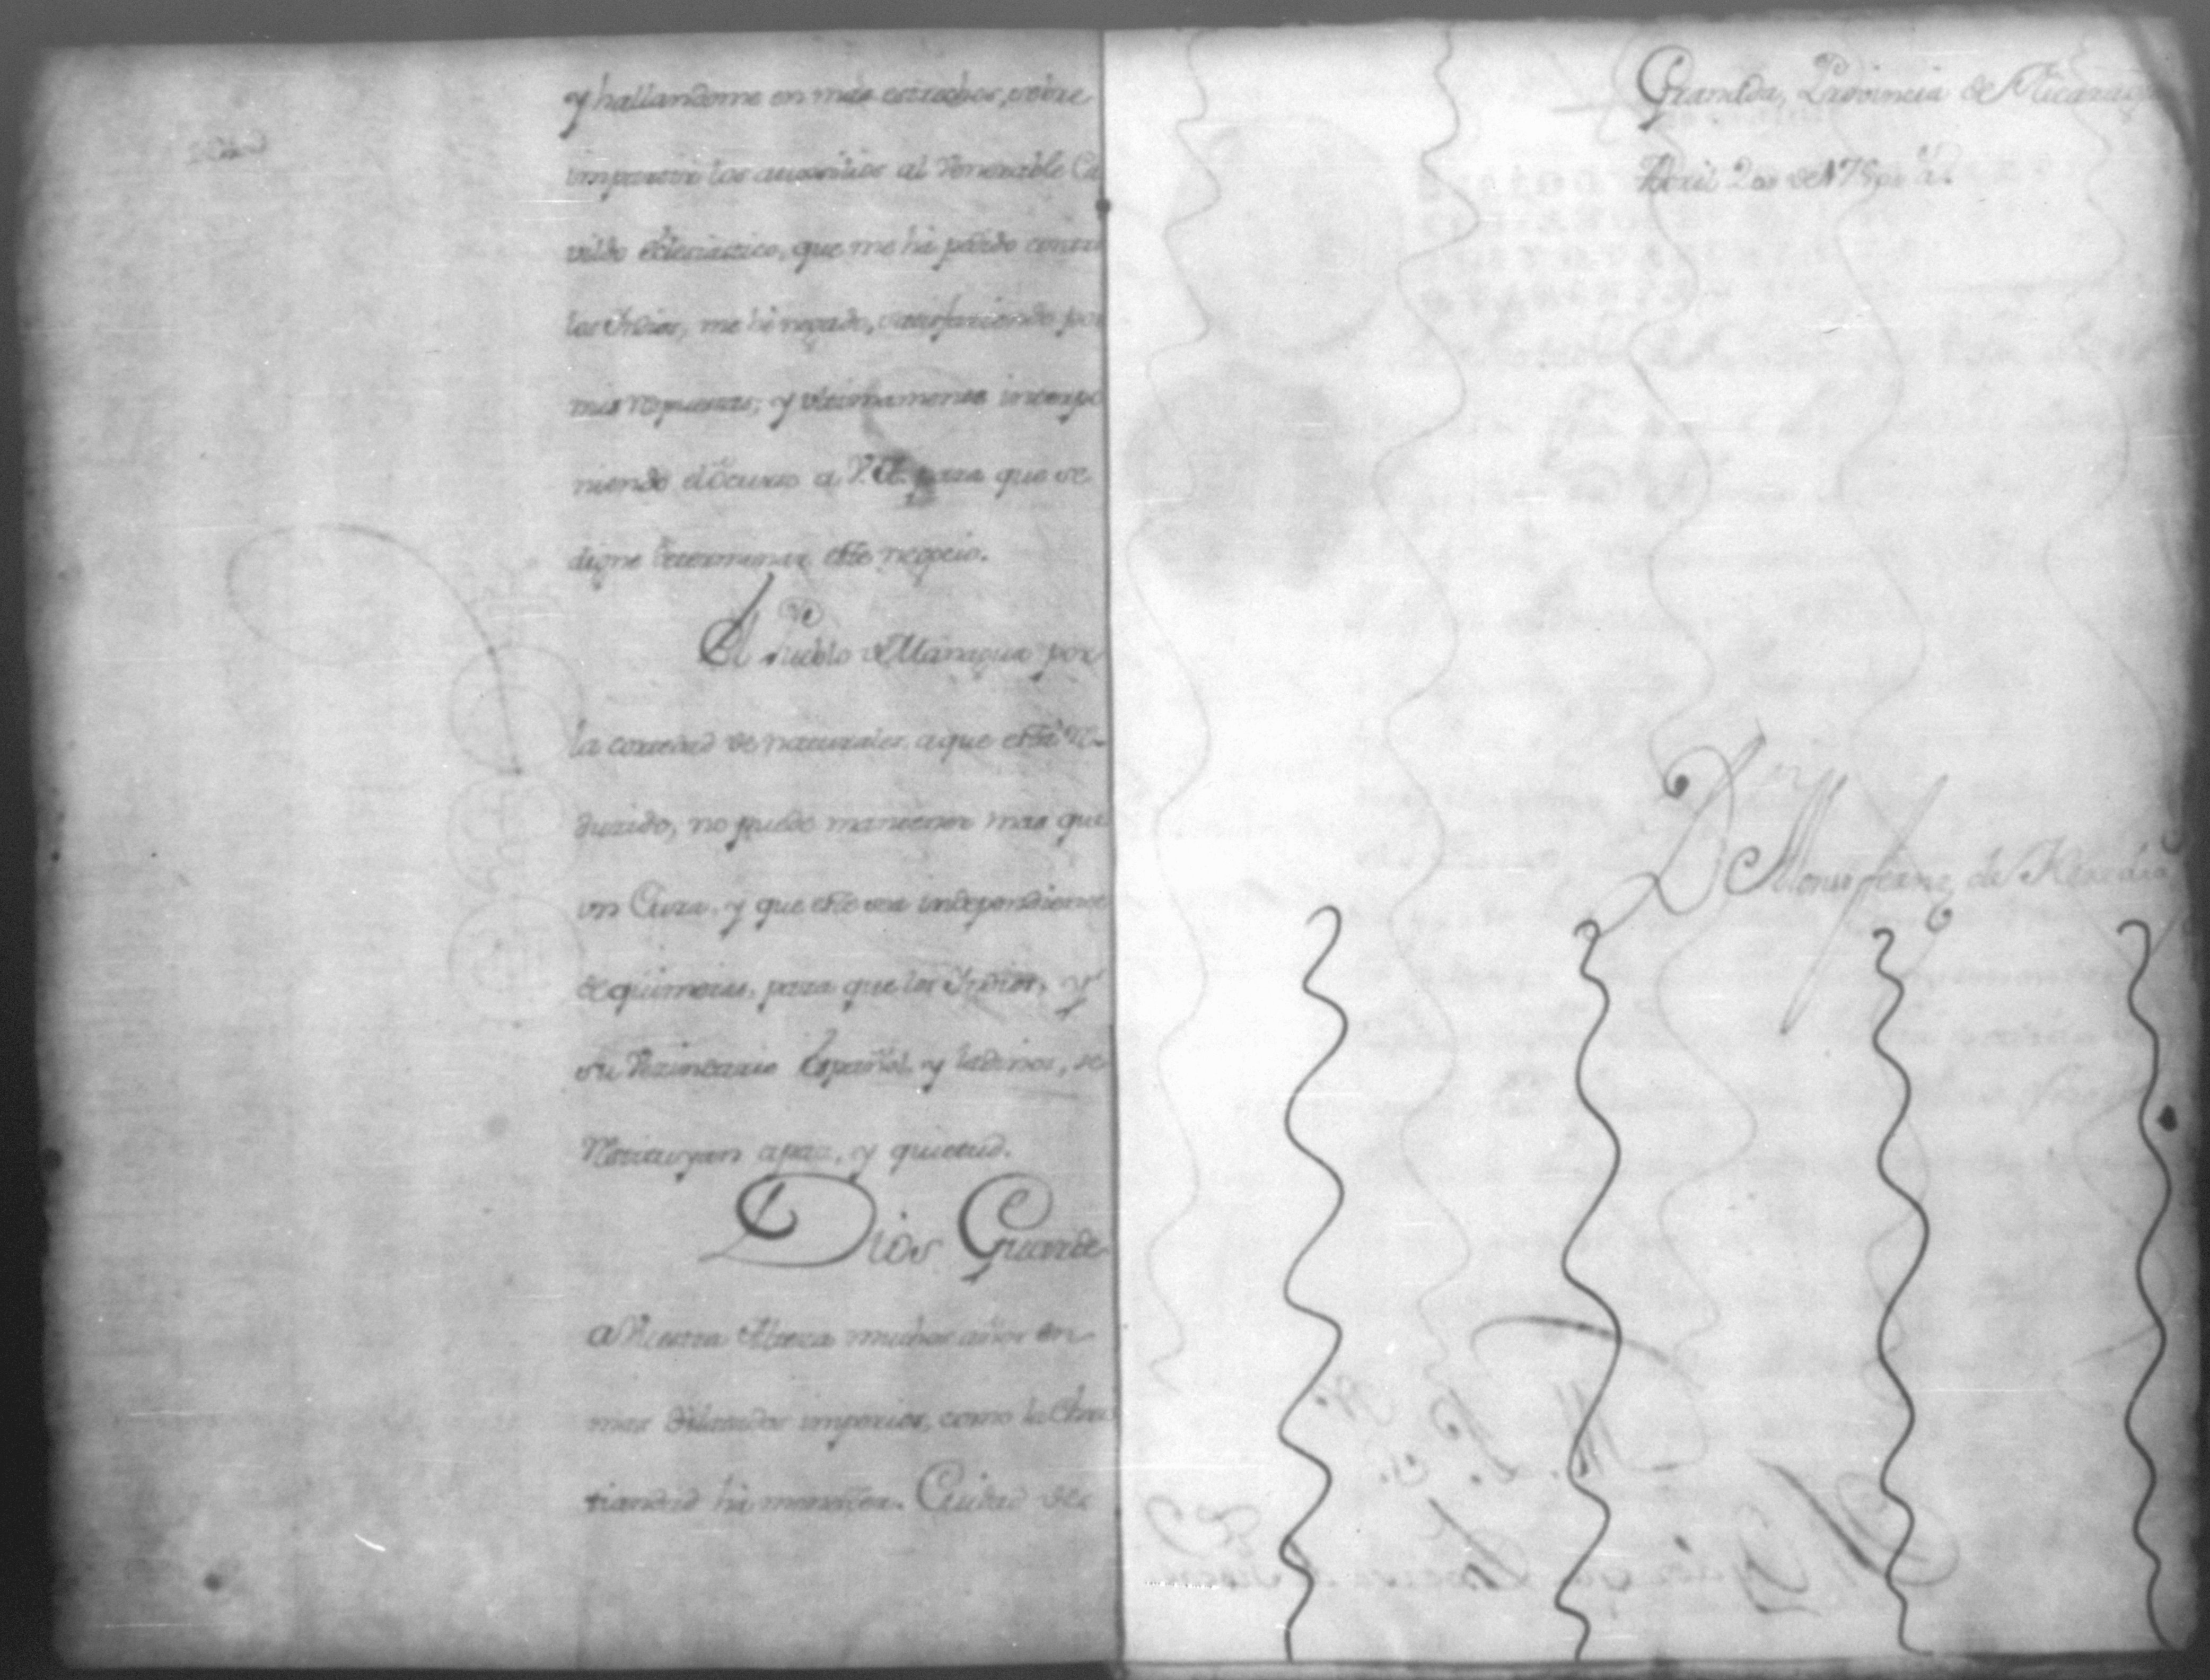 y hallandome en mas estrechos, sobre
impartir los auxilios al Venerable Ca
vildo eclesiastico, que me ha pasado contra
los Yndios, me hé negado, satisfaciendo por
mis respuestas; y ultimamente interpo
niendo el ocurso a V.A. para que se
digne determinar este negocio.
El Pueblo de Managua por
la cortedad de naturales, a que está re-
ducido, no puede mantener mas que
un Cura, y que este sea independiente
de quimeras, para que los Yndios, y
su Vezindario Español, y ladinos, se
restituyan a paz, y quietud.
Dios Guarde
a Vuestra Alteza muchos años en
mas dilatados imperios, como la Chris
tiandad ha menester. Ciudad de
Granada, Provincia de Nicaragua
Abril 20 de
Dn Alonso Fernz de Heredia
M. P. S.